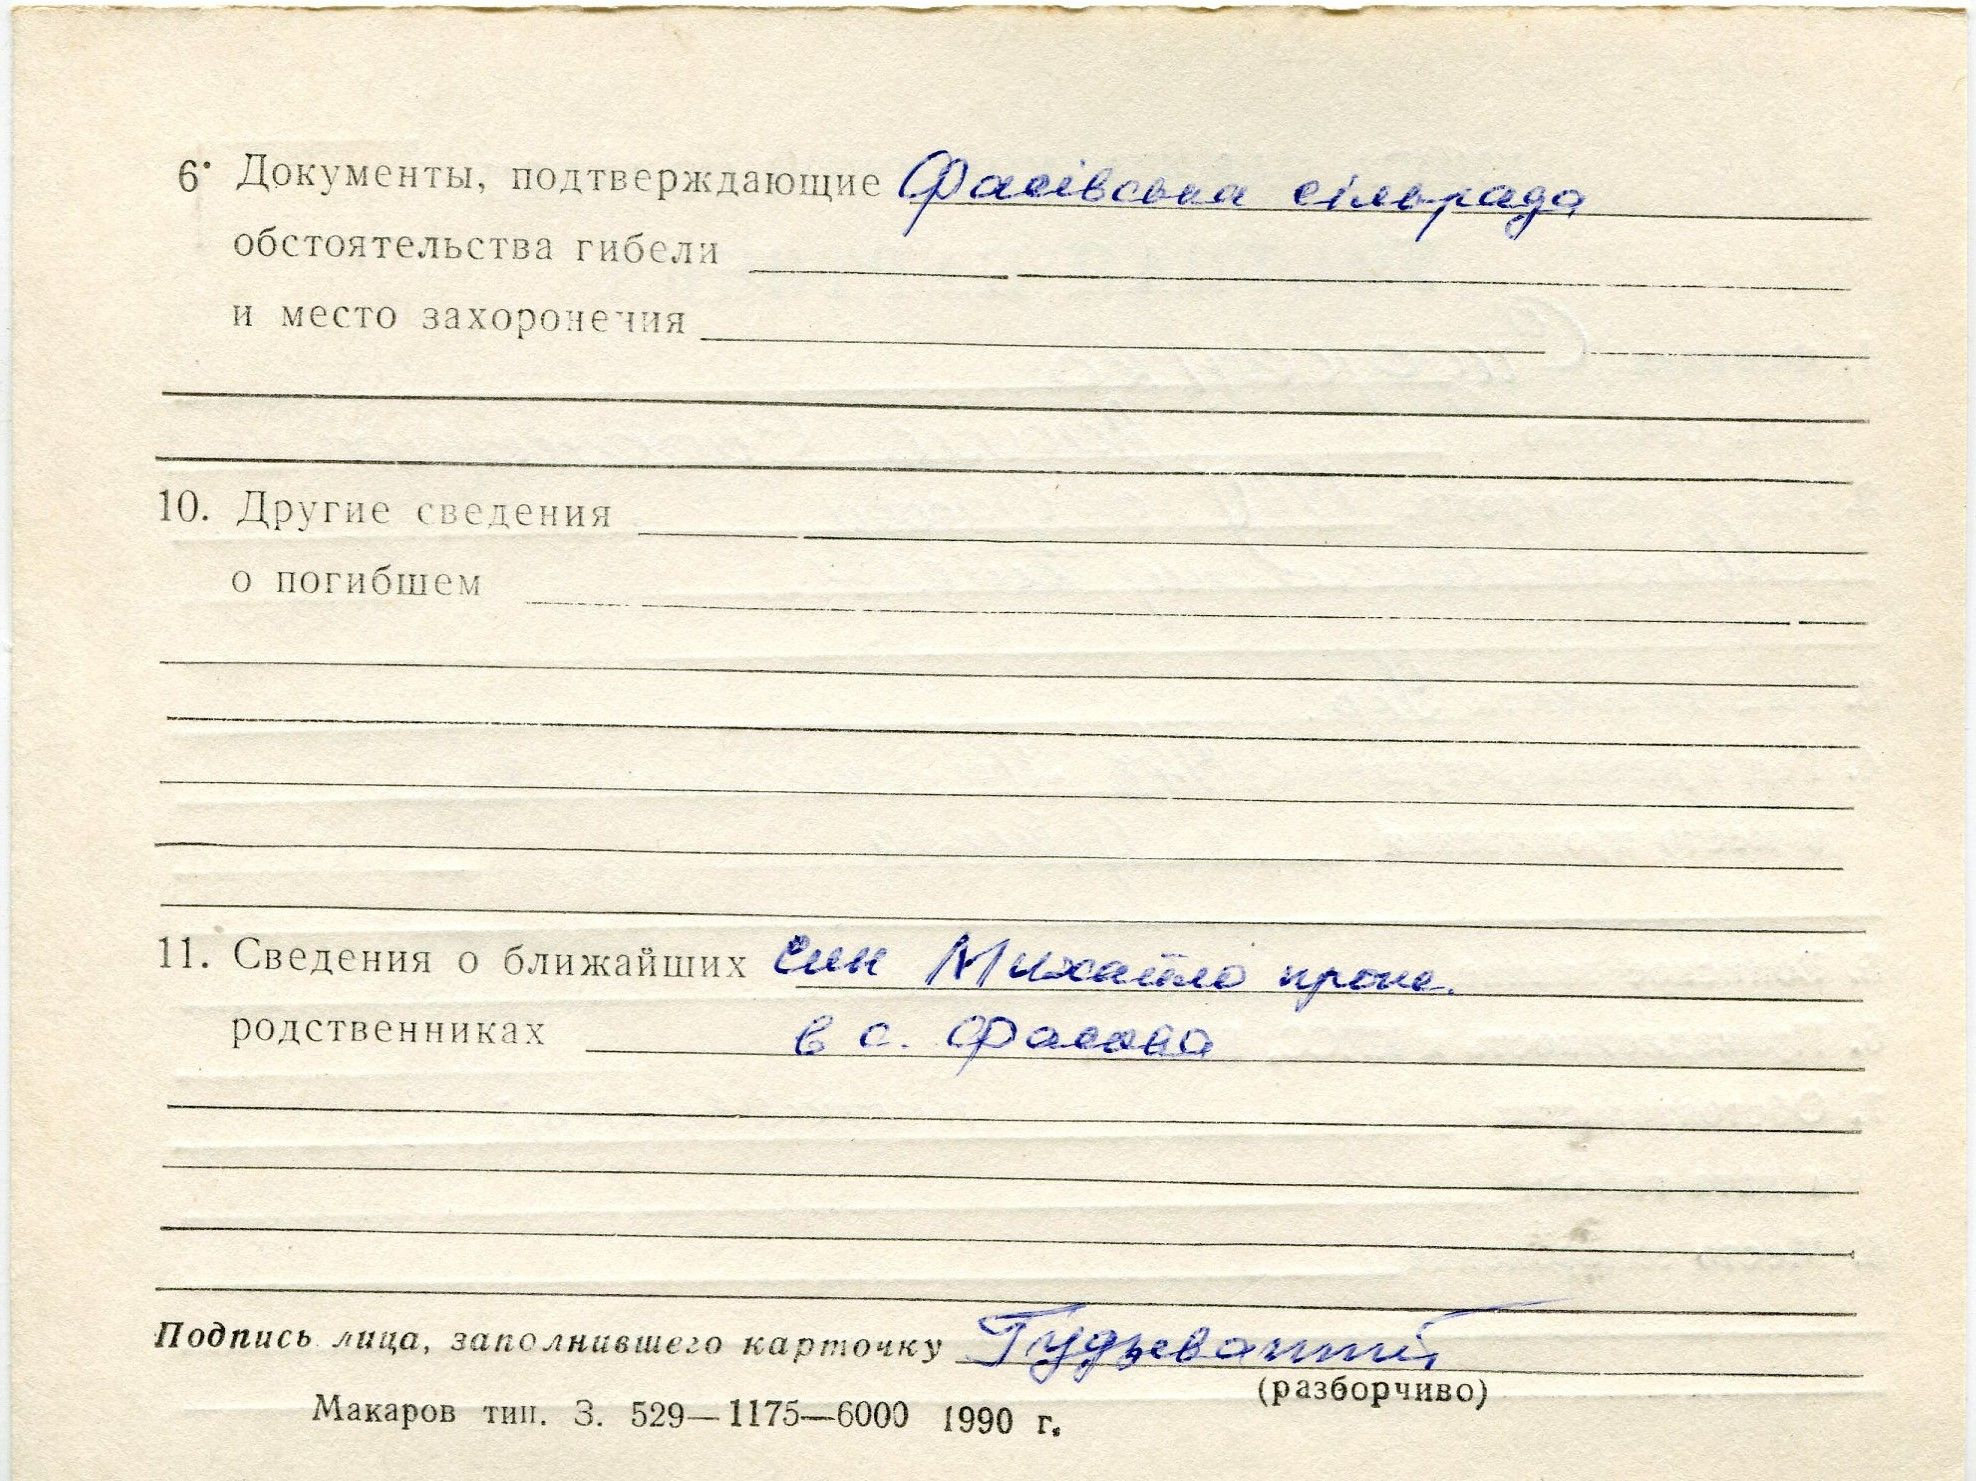 6. Документы, подтверждающие Фасівська сільрада
обстоятельства гибели
и место захоронечия
10. Другие сведения
о погибшем
11. Сведения о ближайших син Михайло прож.
родственниках в с. Фасова
Подпись лица, заполнившего карточку
(разборчиво)
Макаров тип. З. 529—1175—6000 1990 г.